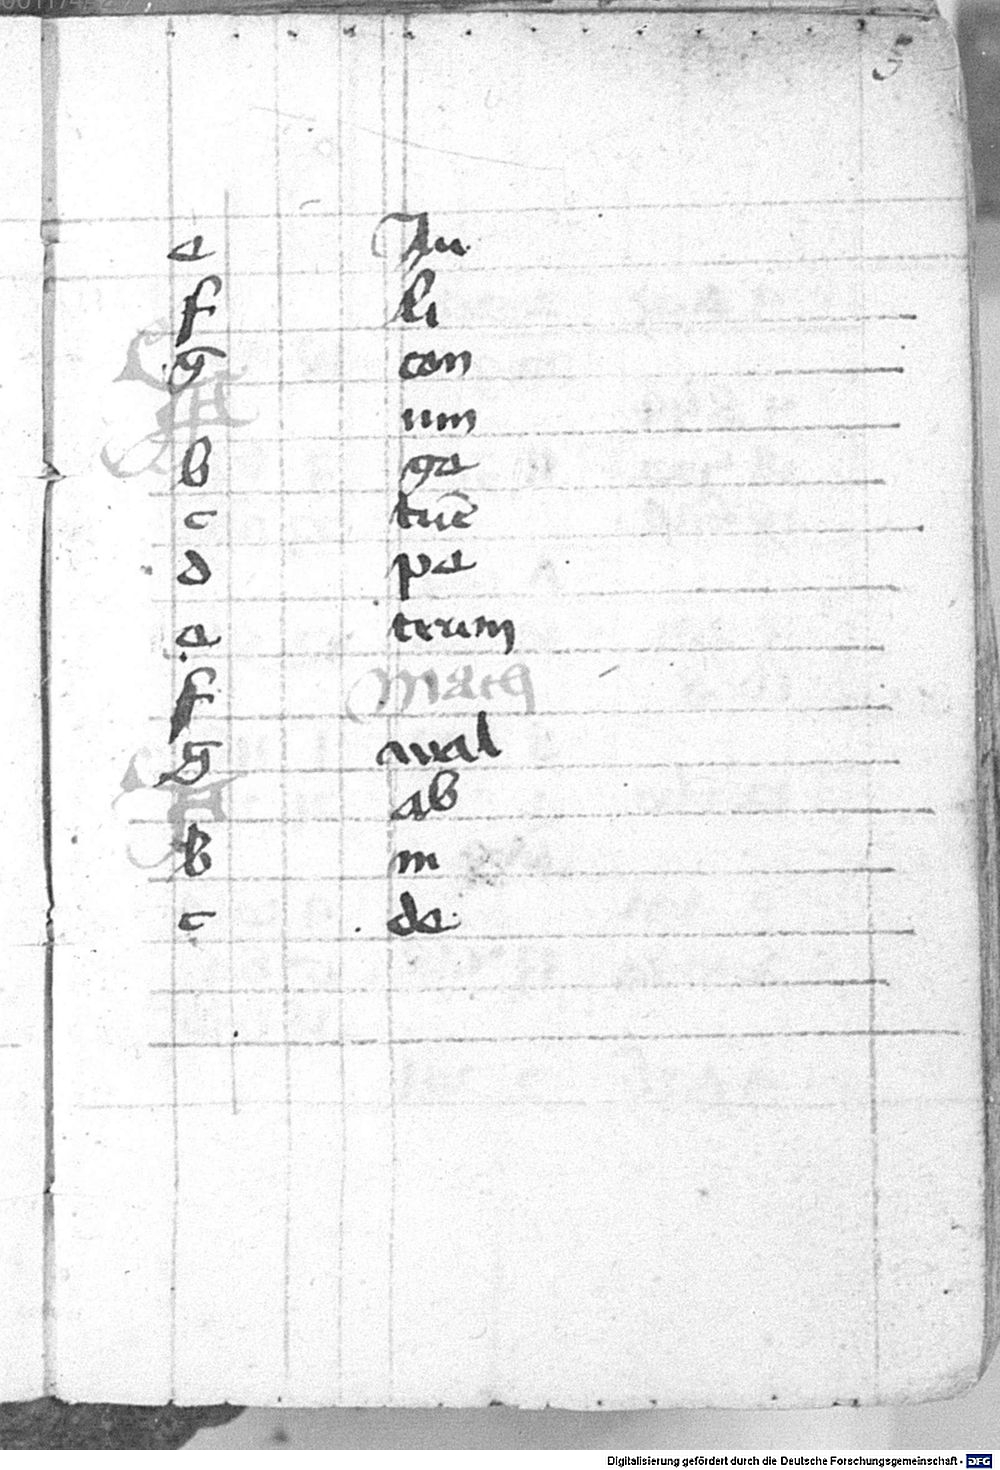 e Ju
f li
g con
A um
b ga
c tuē
d pe
e trum
f Math
g wal
A ab
b in
c de
Digitalisierung gefördert durch die Deutsche Forschungsgemeinschaft - DFG